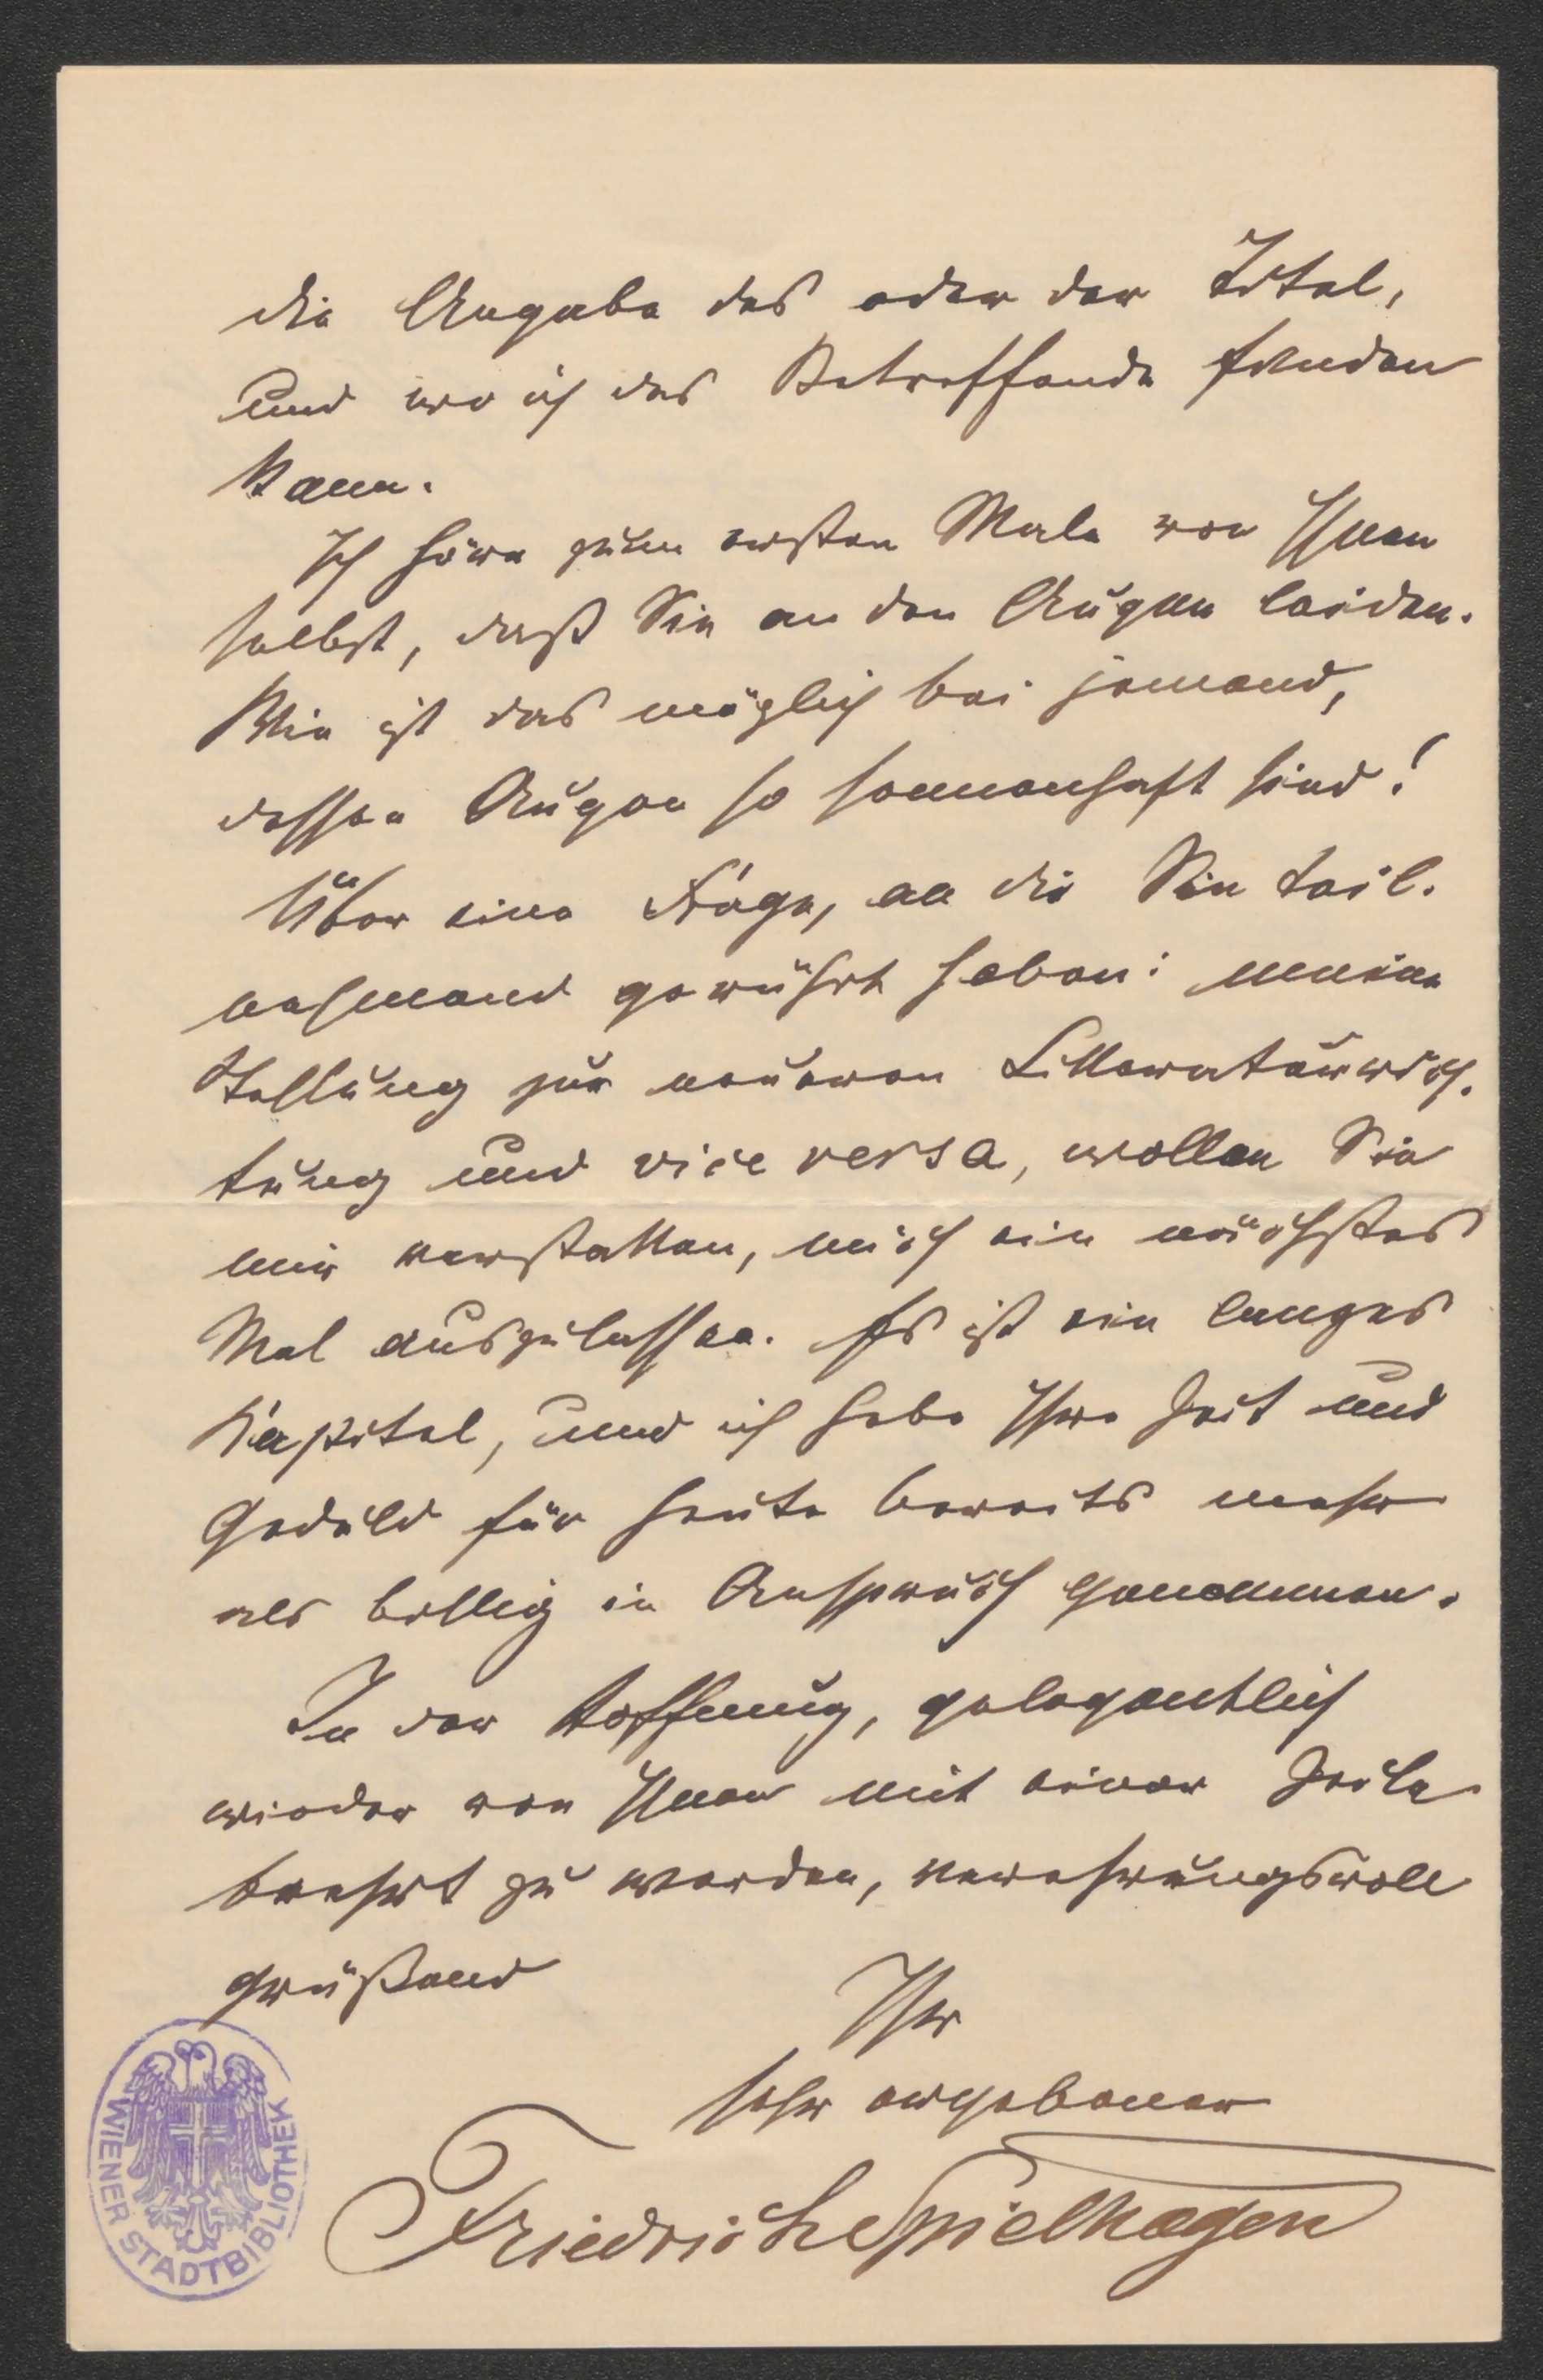 die Angabe des oder der Titel,
und wo ich das Betreffende finden
kann.
Ich höre zum ersten Male von Ihnen
selbst, daß Sie an den Augen leiden.
Wie ist das möglich bei jemand,
dessen Augen so sonnenhaft sind!
Über eine Frage, an die Sie teil-
nehmend gerührt haben: meine
Stellung zur neueren Litteraturrich-
tung und vice versa, wollen Sie
mir verstatten, mich ein nächstes
Mal auszulassen. Es ist ein langes
Kapitel, und ich habe Ihre Zeit und
Geduld für heute bereits mehr
als billig in Anspruch genommen.
In der Hoffnung, gelegentlich
wieder von Ihnen mit einer Zeile
beehrt zu werden, verehrungsvoll
grüßend
Ihr
sehr ergebener
Friedrich Spielhagen
WIENER STADTBIBLIOTHEK